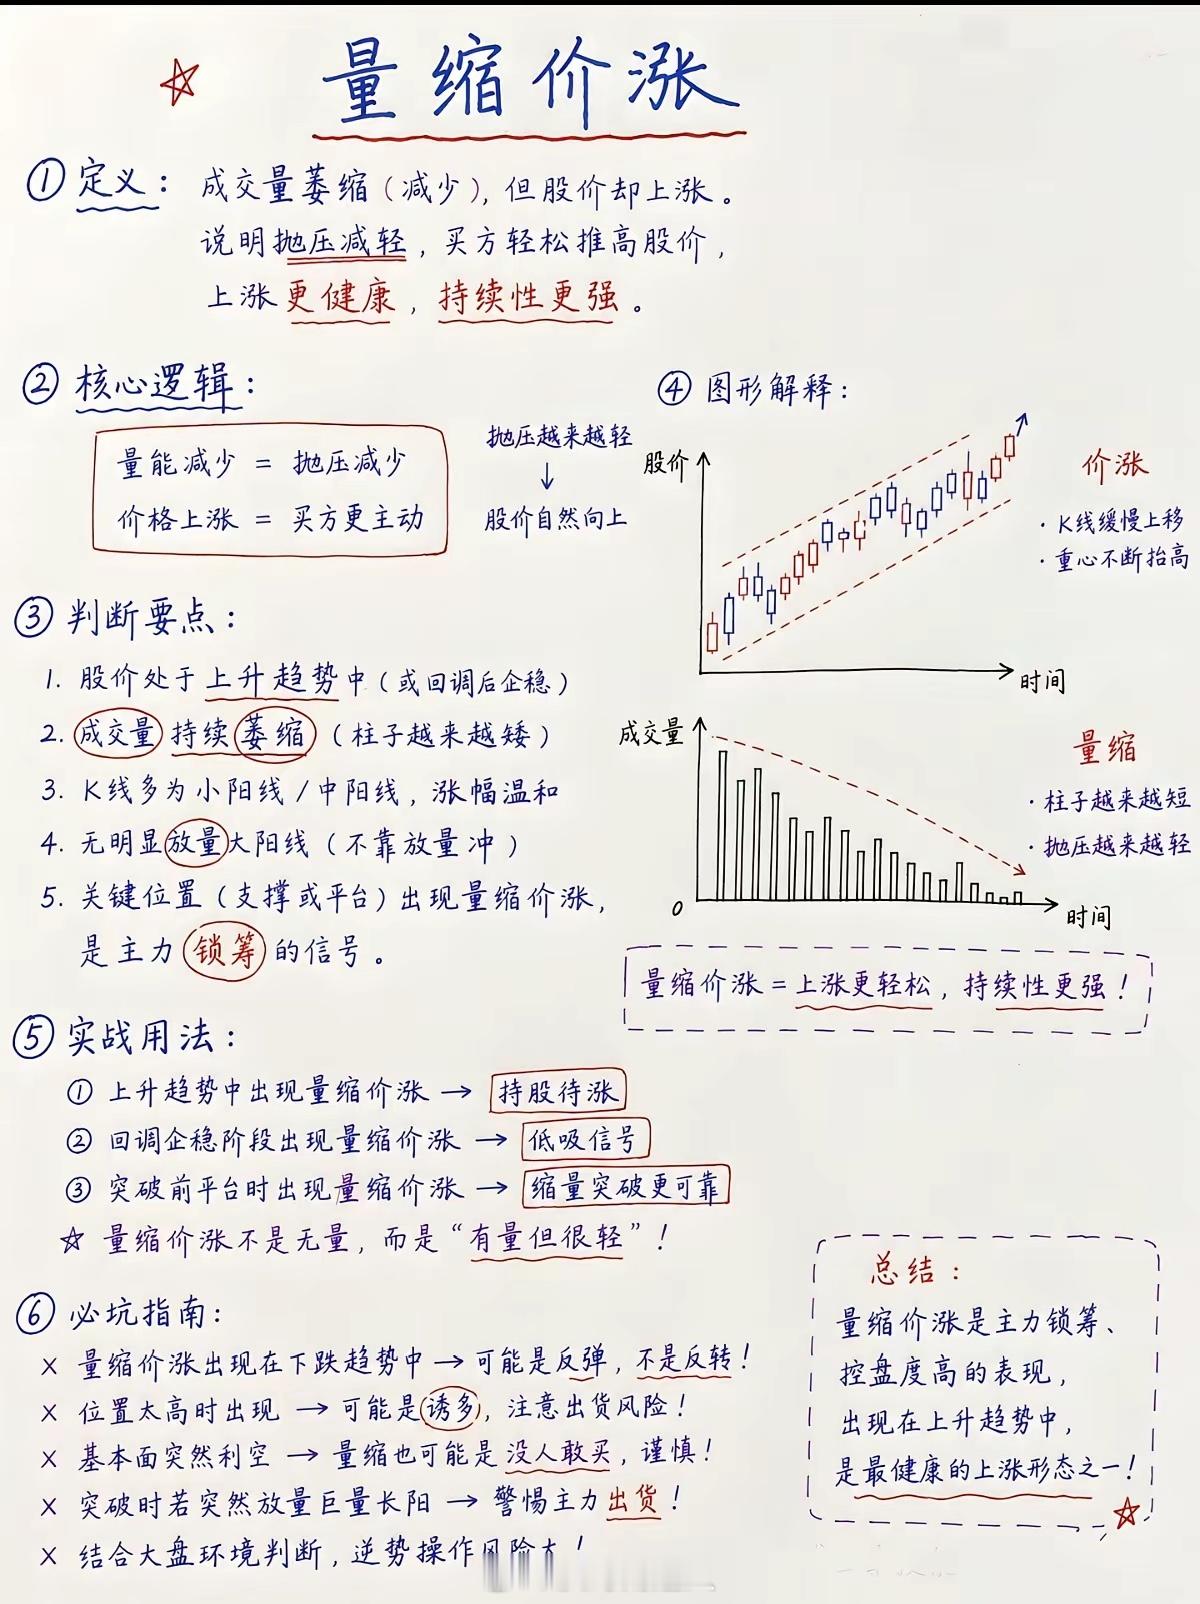 ☆ 量缩价涨
① 定义：成交量萎缩（减少），但股价却上涨。
说明抛压减轻，买方轻松推高股价，
上涨更健康，持续性更强。
② 核心逻辑：
量能减少 = 抛压减少
价格上涨 = 买方更主动
抛压越来越轻
↓
股价自然向上
③ 判断要点：
1. 股价处于上升趋势中（或回调后企稳）
2. 成交量持续萎缩（柱子越来越矮）
3. K线多为小阳线/中阳线，涨幅温和
4. 无明显放量大阳线（不靠放量冲）
5. 关键位置（支撑或平台）出现量缩价涨，
是主力锁筹的信号。
④ 图形解释：
股价
时间
价涨
·K线缓慢上移
·重心不断抬高
成交量
0
时间
量缩
·柱子越来越短
·抛压越来越轻
量缩价涨=上涨更轻松，持续性更强！
⑤ 实战用法：
① 上升趋势中出现量缩价涨 → 持股待涨
② 回调企稳阶段出现量缩价涨 → 低吸信号
③ 突破前平台时出现量缩价涨 → 缩量突破更可靠
☆ 量缩价涨不是无量，而是“有量但很轻”！
⑥ 必坑指南：
× 量缩价涨出现在下跌趋势中 → 可能是反弹，不是反转！
× 位置太高时出现 → 可能是诱多，注意出货风险！
× 基本面突然利空 → 量缩也可能是没人敢买，谨慎！
× 突破时若突然放量巨量长阳 → 警惕主力出货！
× 结合大盘环境判断，逆势操作风险大！
总结：
量缩价涨是主力锁筹、
控盘度高的表现，
出现在上升趋势中，
是最健康的上涨形态之一！
☆